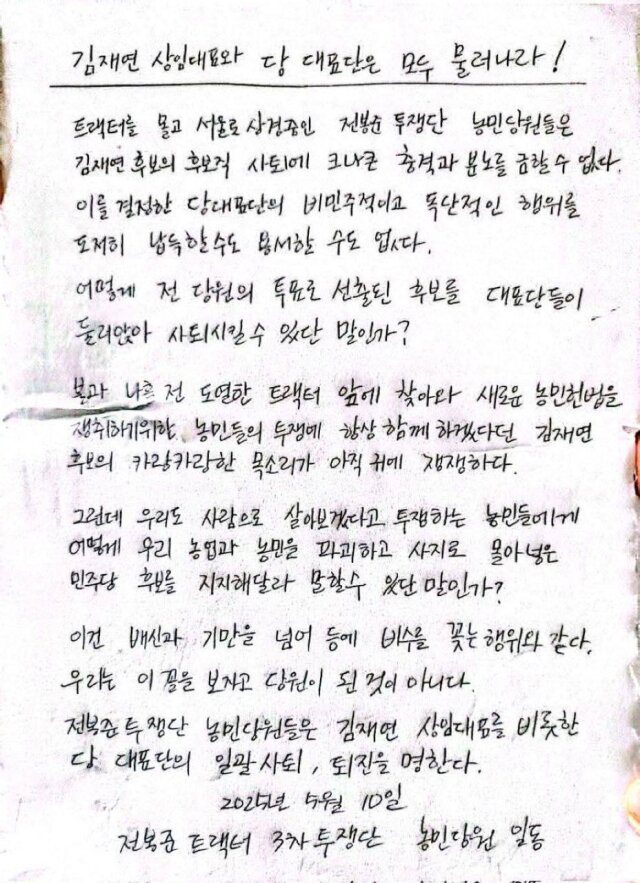 김재연 상임대표와 당 대표단은 모두 물러나라!
트랙터를 몰고 서울로 상경중인 전봉준 투쟁단 농민당원들은
김재연 후보의 후보직 사퇴에 크나큰 충격과 분노를 금할 수 없다.
이를 결정한 당대표단의 비민주적이고 독단적인 행위를
도저히 납득할수도 용서할 수도 없다.
어떻게 전 당원의 투표로 선출된 후보를 대표단들이
둘러앉아 사퇴시킬 수 있단 말인가?
불과 나흘 전 도열한 트랙터 앞에 찾아와 새로운 농민헌법을
쟁취하기위한 농민들의 투쟁에 항상 함께 하겠다던 김재연
후보의 카랑카랑한 목소리가 아직 귀에 쟁쟁하다.
그런데 우리도 사람으로 살아보겠다고 투쟁하는 농민들에게
어떻게 우리 농업과 농민을 파괴하고 사지로 몰아넣은
민주당 후보를 지지해달라 말할수 있단 말인가?
이건 배신과 기만을 넘어 등에 비수를 꽂는 행위와 같다.
우리는 이 꼴을 보자고 당원이 된 것이 아니다.
전봉준투쟁단 농민당원들은 김재연 상임대표를 비롯한
당 대표단의 일괄사퇴, 퇴진을 명한다.
2025년 5월 10일
전봉준 트랙터 3차 투쟁단 농민당원 일동